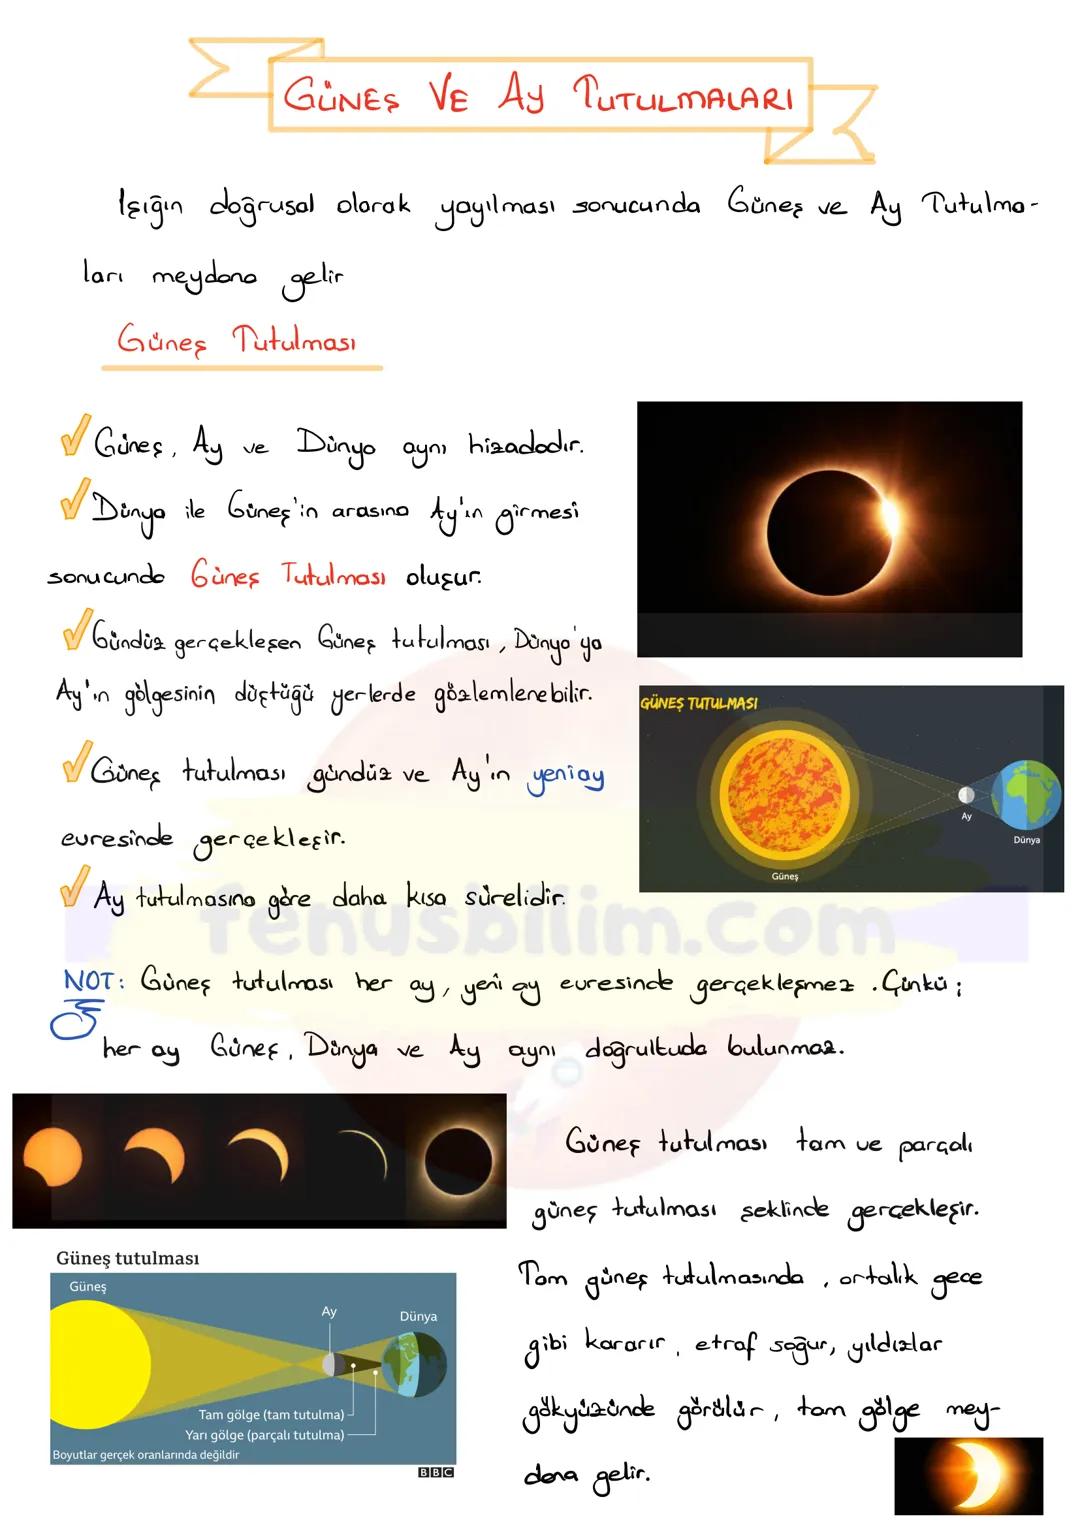 GÜNEŞ VE AY TUTULMALARI
Işığın doğrusal olarak yayılması sonucunda Güneş ve Ay Tutulma-
ları meydana gelir
Güneş Tutulması
Güneş, Ay ve Dünya aynı hizadadır.
Dünya ile Güneş'in arasına Ay'ın girmesi
sonucunda Güneş Tutulması oluşur.
Gündüz gerçekleşen Güneş tutulması, Dünya'ya
Ay'ın gölgesinin düştüğü yerlerde gözlemlenebilir.
GÜNEŞ TUTULMASI
Ay
Dünya
Güneş
Güneş tutulması gündüz ve Ay'ın yeniay
evresinde gerçekleşir.
Ay tutulmasına göre daha kısa sürelidir.
fenusbilim.com
NOT: Güneş tutulması her ay, yeni ay evresinde gerçekleşmez. Çünkü;
her ay Güneş, Dünya ve Ay aynı doğrultuda bulunmaz.
Güneş tutulması
Güneş
Ay
Dünya
Tam gölge (tam tutulma)
Yarı gölge (parçalı tutulma)
Boyutlar gerçek oranlarında değildir
BBC
Güneş tutulması tam ve parçalı
güneş tutulması şeklinde gerçekleşir.
Tam güneş tutulmasında, ortalık gece
gibi kararır, etraf soğur, yıldızlar
gökyüzünde görülür, tam gölge mey-
dana gelir.